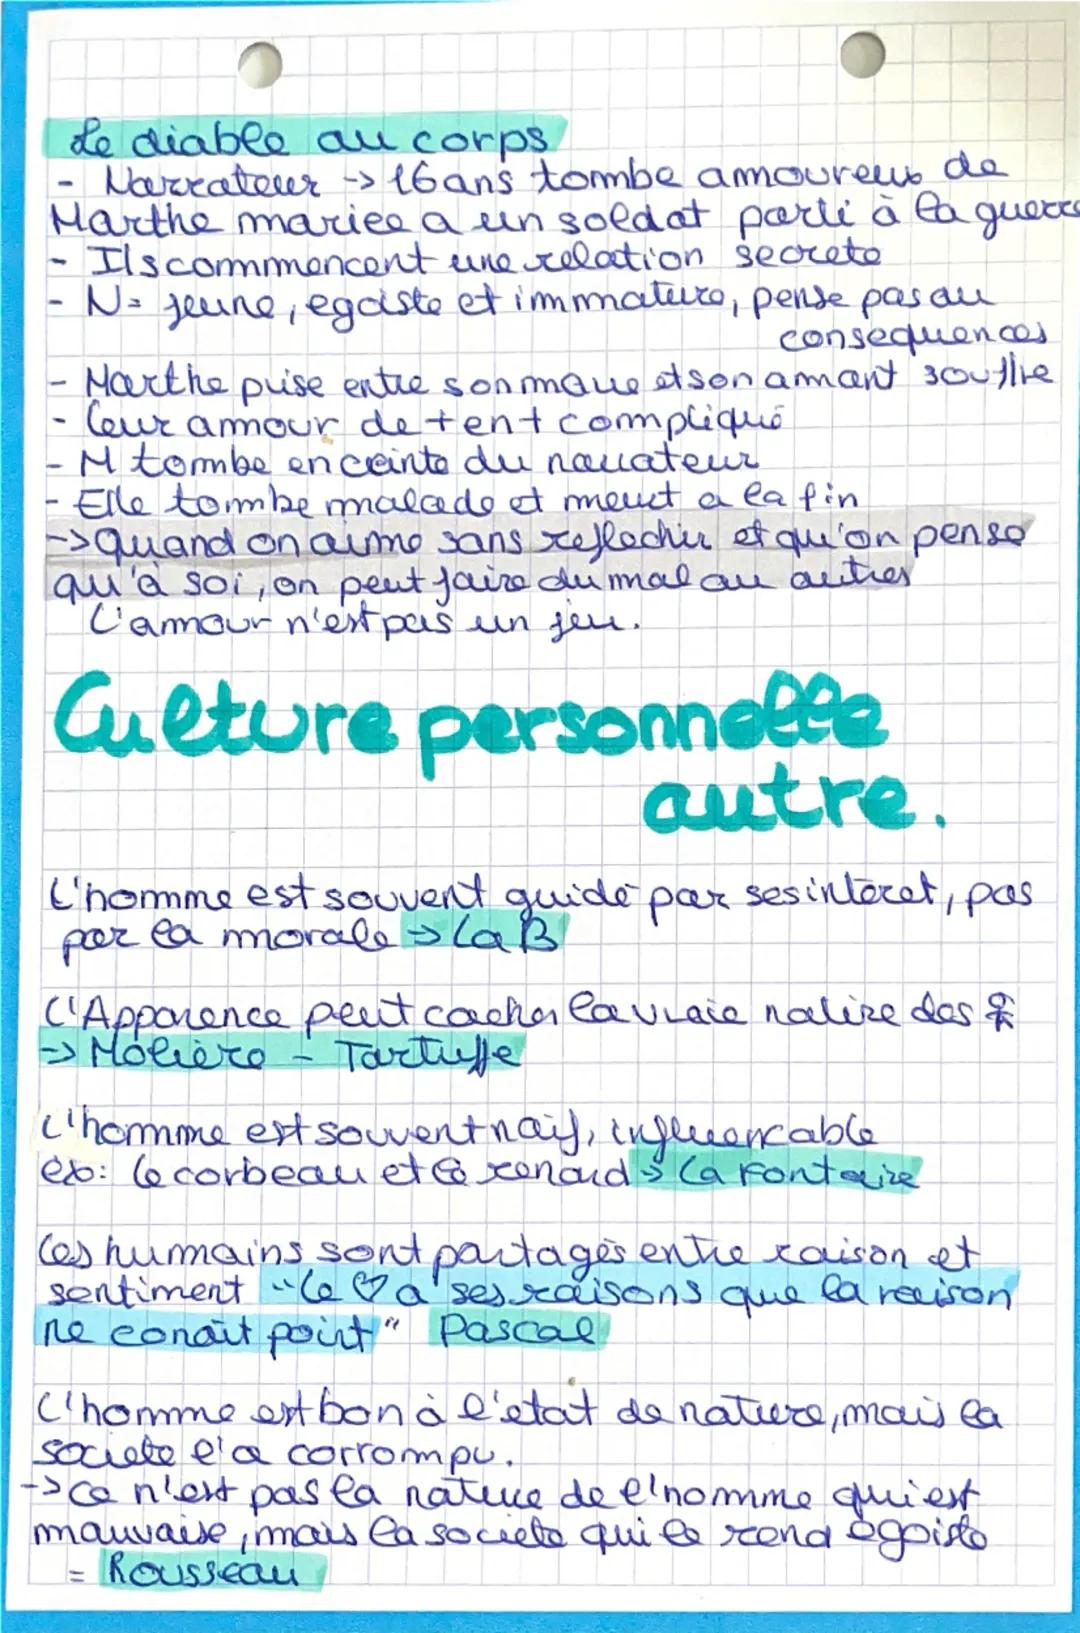 Le diable au corps
- Narrateur -> 16ans tombe amoureux de
Marthe mariée a un soldat parti à la guerre
- Ils commmencent une relation secrete
- N= jeune, egoiste et immature, pense pas au
consequences
- Marthe prise entre son maue et son amant souffre
- leur amour devient compliqué
- M tombe enceinte du narrateur
- Elle tombe malade et meurt a la fin
-> quand on aime sans reflechir et qu'on pense
qu'à soi, on peut faire du mal au autres
L'amour n'est pas un jeu.
Culture personnelle
autre.
L'homme est souvent guidé par ses intèret, pas
par la morale -> La B
L'Apparence peut cacher la vraie natire des
-> Molière - Tartuffe
L'homme est souvent naif, influencable
ex: le corbeau et le renard -> La Fontaine
Les humains sont partagés entre raison et
sentiment "le ♡ a ses raisons que la raison
ne conait point" Pascal
L'homme est bon à l'état de nature, mais la
societe l'a corrompu.
-> ce n'est pas la nature de l'homme qui est
mauvaise, mais la societe qui le rend égoiste
= Rousseau